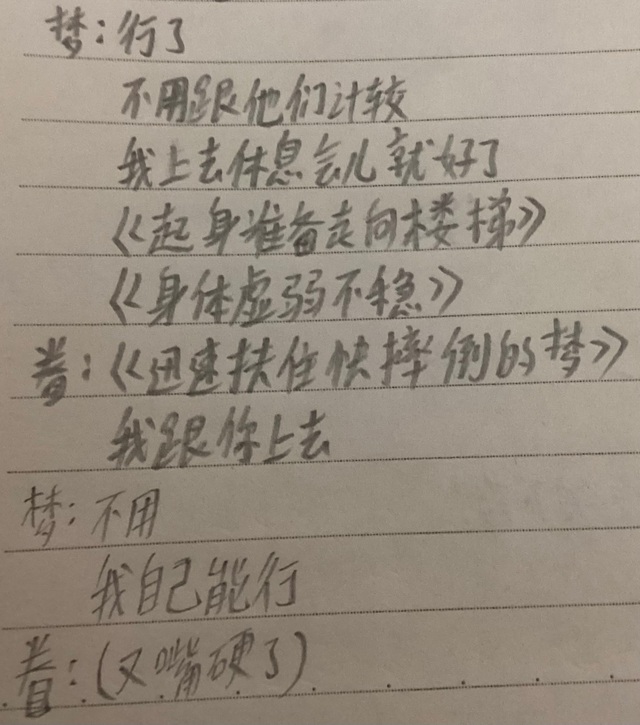 梦:行了
不用跟他们计较
我上去休息会儿就好了
《起身准备走向楼梯》
《身体虚弱不稳》
眷:《迅速扶住快摔倒的梦》
我跟你上去
梦:不用
我自己能行
眷:(又嘴硬了)